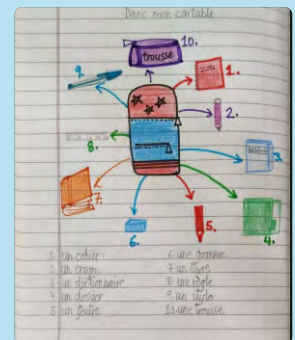 Dans mon cartable
10.
trousse
9.
1.
2.
8.
3.
7.
6.
5.
4.
1. un cahier
2. un crayon
3. un dictionnaire
4. un dossier
5. un feutre
6. une gomme
7. un livre
8. une règle
9. un stylo
10. une trousse